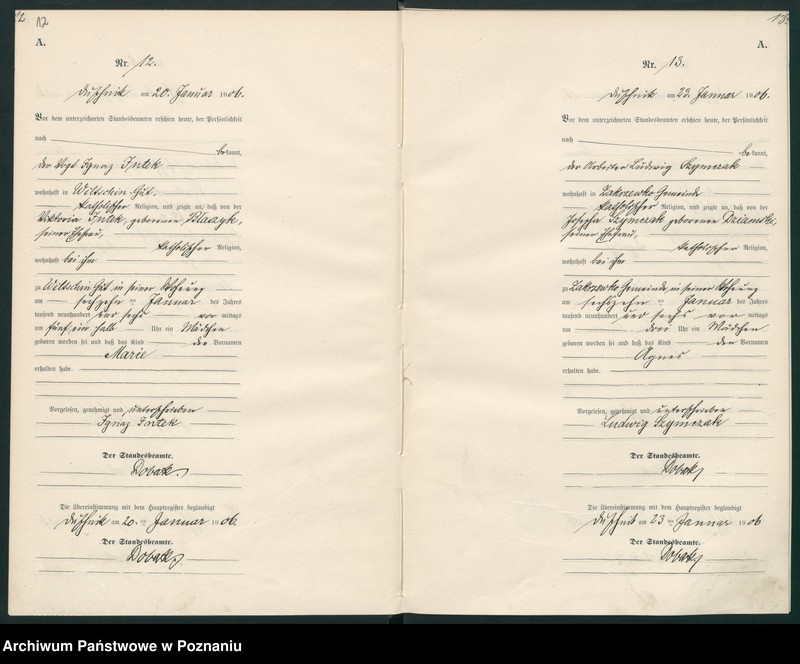 12
A.
Nr. 12.
Duschnik am 20. Januar 1906.
Vor dem unterzeichneten Standesbeamten erschien heute, der Persönlichkeit
nach
bekannt,
der Vogt Ignaz Intek
wohnhaft in Wiltschin Gut,
katholischer Religion, und zeigte an, daß von der
Viktoria Intek, geborenen Blaczyk,
seiner Ehefrau,
katholischer Religion,
wohnhaft bei ihm
zu Wiltschin Gut, in seiner Wohnung
am sechzehnten Januar des Jahres
tausend neunhundert und sechs vor mittags
um fünf ein halb Uhr ein Mädchen
geboren worden sei und daß das Kind den Vornamen
Marie
erhalten habe.
Vorgelesen, genehmigt und unterschrieben
Ignaz Intek
Der Standesbeamte.
Dobak
Die Übereinstimmung mit dem Hauptregister beglaubigt
Duschnik am 20. ten Januar 1906.
Der Standesbeamte.
Dobak
13
A.
Nr. 13.
Duschnik am 23. Januar 1906.
Vor dem unterzeichneten Standesbeamten erschien heute, der Persönlichkeit
nach
bekannt,
der Arbeiter Ludwig Szymczak
wohnhaft in Zakrzewko Gemeinde
katholischer Religion, und zeigte an, daß von der
Josepha Szymczak geborenen Dziamski,
seiner Ehefrau,
katholischer Religion,
wohnhaft bei ihm
zu Zakrzewko Gemeinde, in seiner Wohnung
am sechszehn ten Januar des Jahres
tausend neunhundert und sechs vor mittags
um drei Uhr ein Mädchen
geboren worden sei und daß das Kind den Vornamen
Agnes
erhalten habe.
Vorgelesen, genehmigt und unterschrieben
Ludwig Szymczak
Der Standesbeamte.
Dobak
Die Übereinstimmung mit dem Hauptregister beglaubigt
Duschnik am 23 ten Januar 1906
Der Standesbeamte.
Dobak
Archiwum Państwowe w Poznaniu